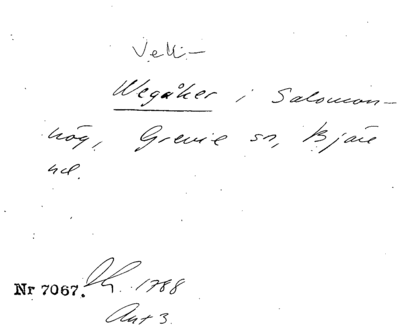 Vek-
Wegåker i Salomon-
hög, Grevie sn, Bjäre
hd.
Nr 7067. Lh. 1788
Akt 3.